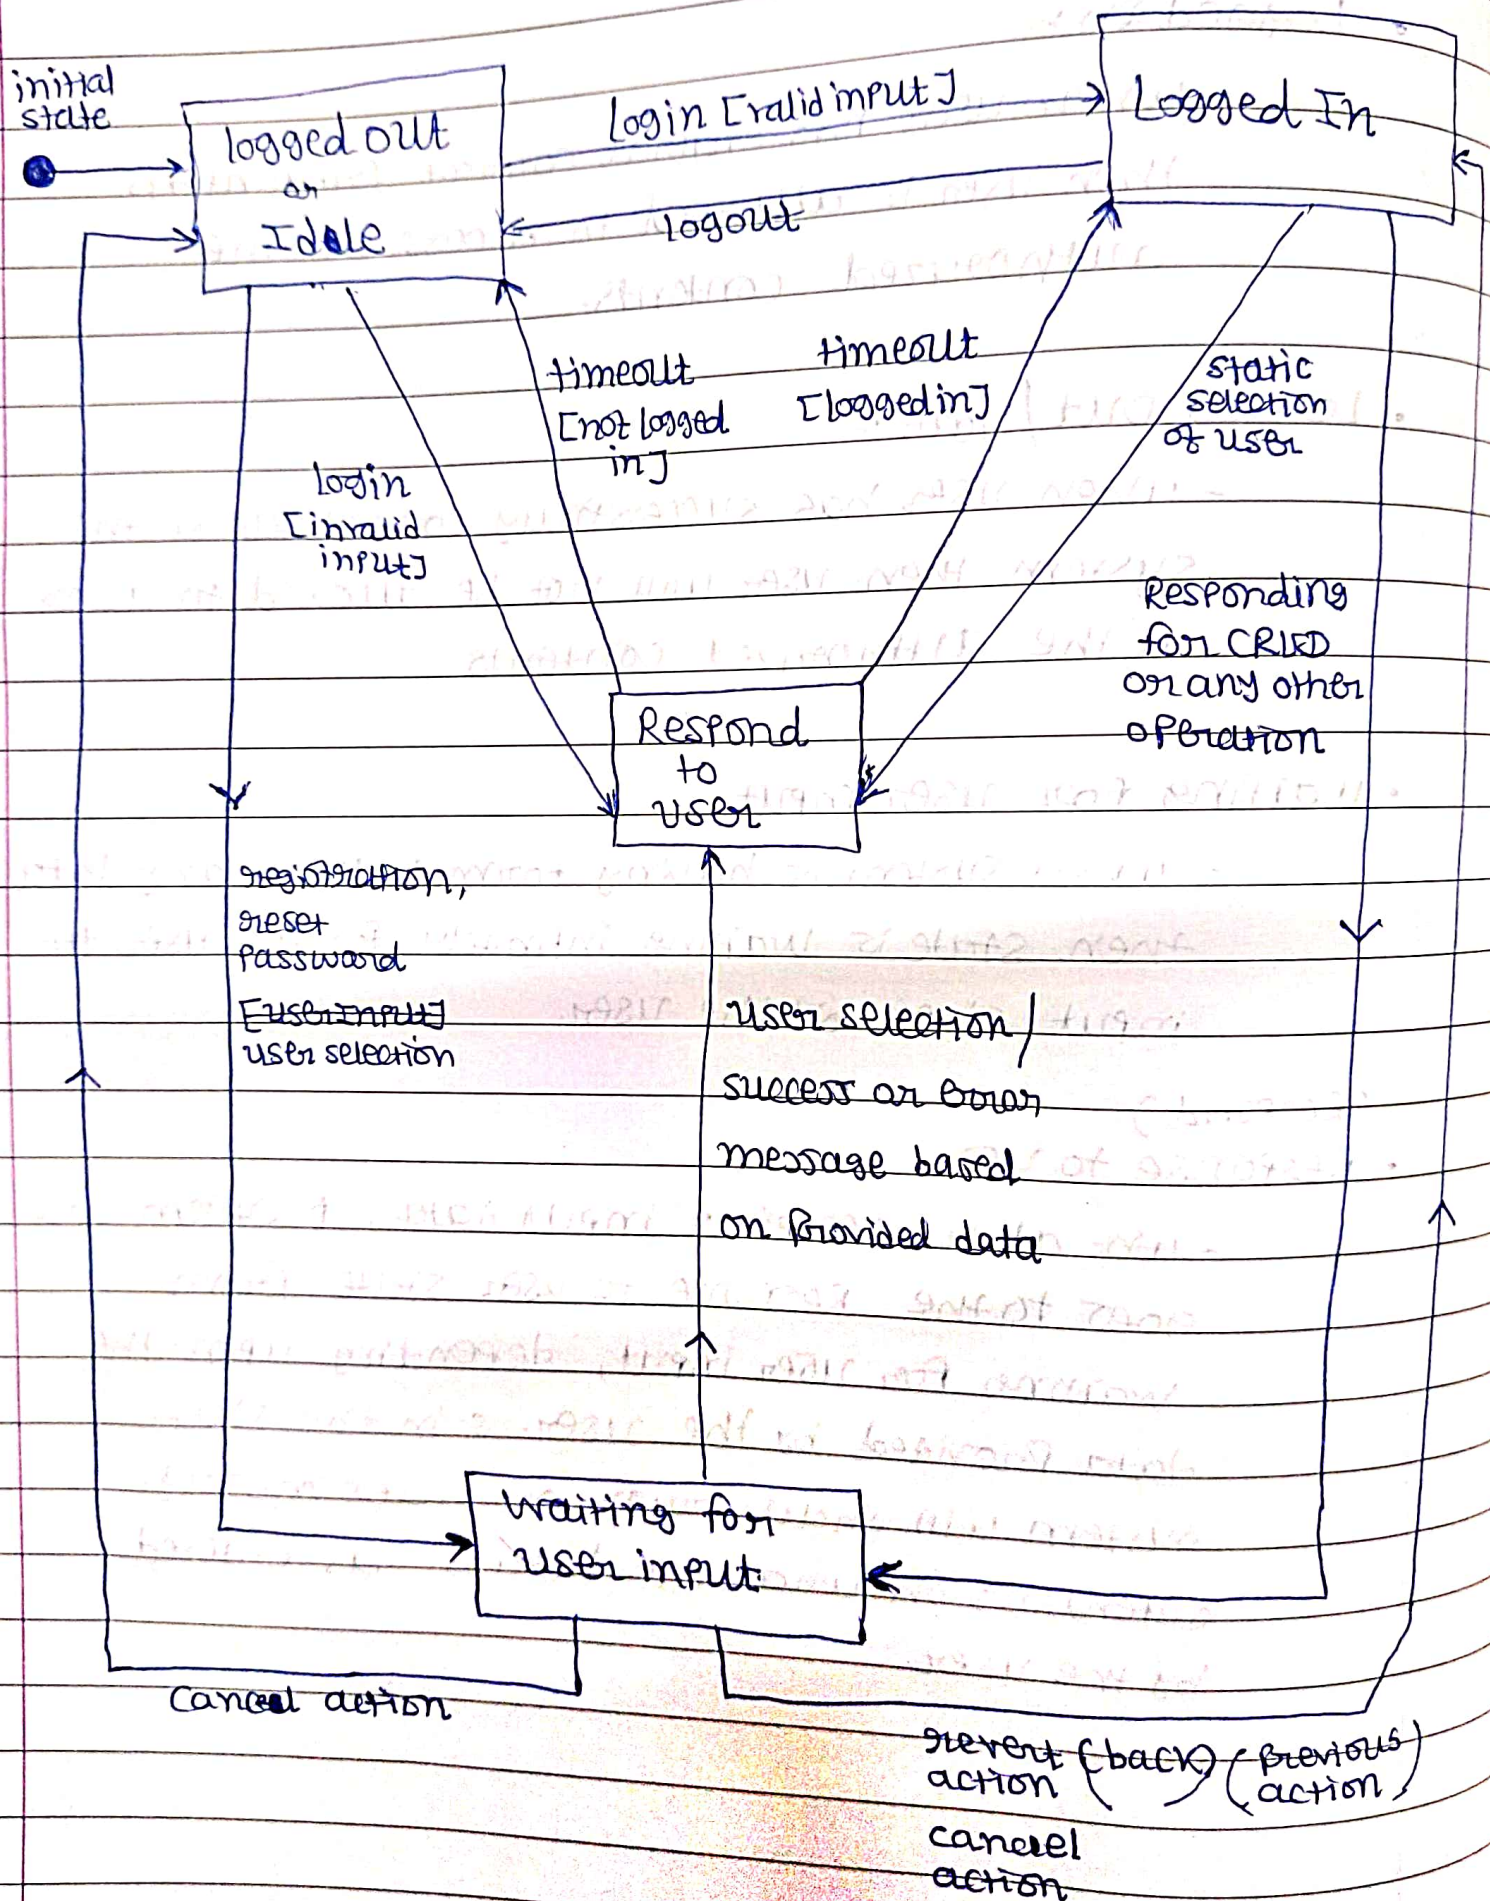 initial
state
logged out
or
Idle
login [valid input]
Logged In
logout
timeout
[not logged
in]
timeout
[loggedin]
static
selection
of user
login
[invalid
input]
Responding
for CRUD
or any other
operation
Respond
to
user
registration,
reset
password
[userinput]
user selection
user selection /
success or error
message based
on Provided data
waiting for
user input
cancel action
revert (back) (previous
action action)
cancel
action